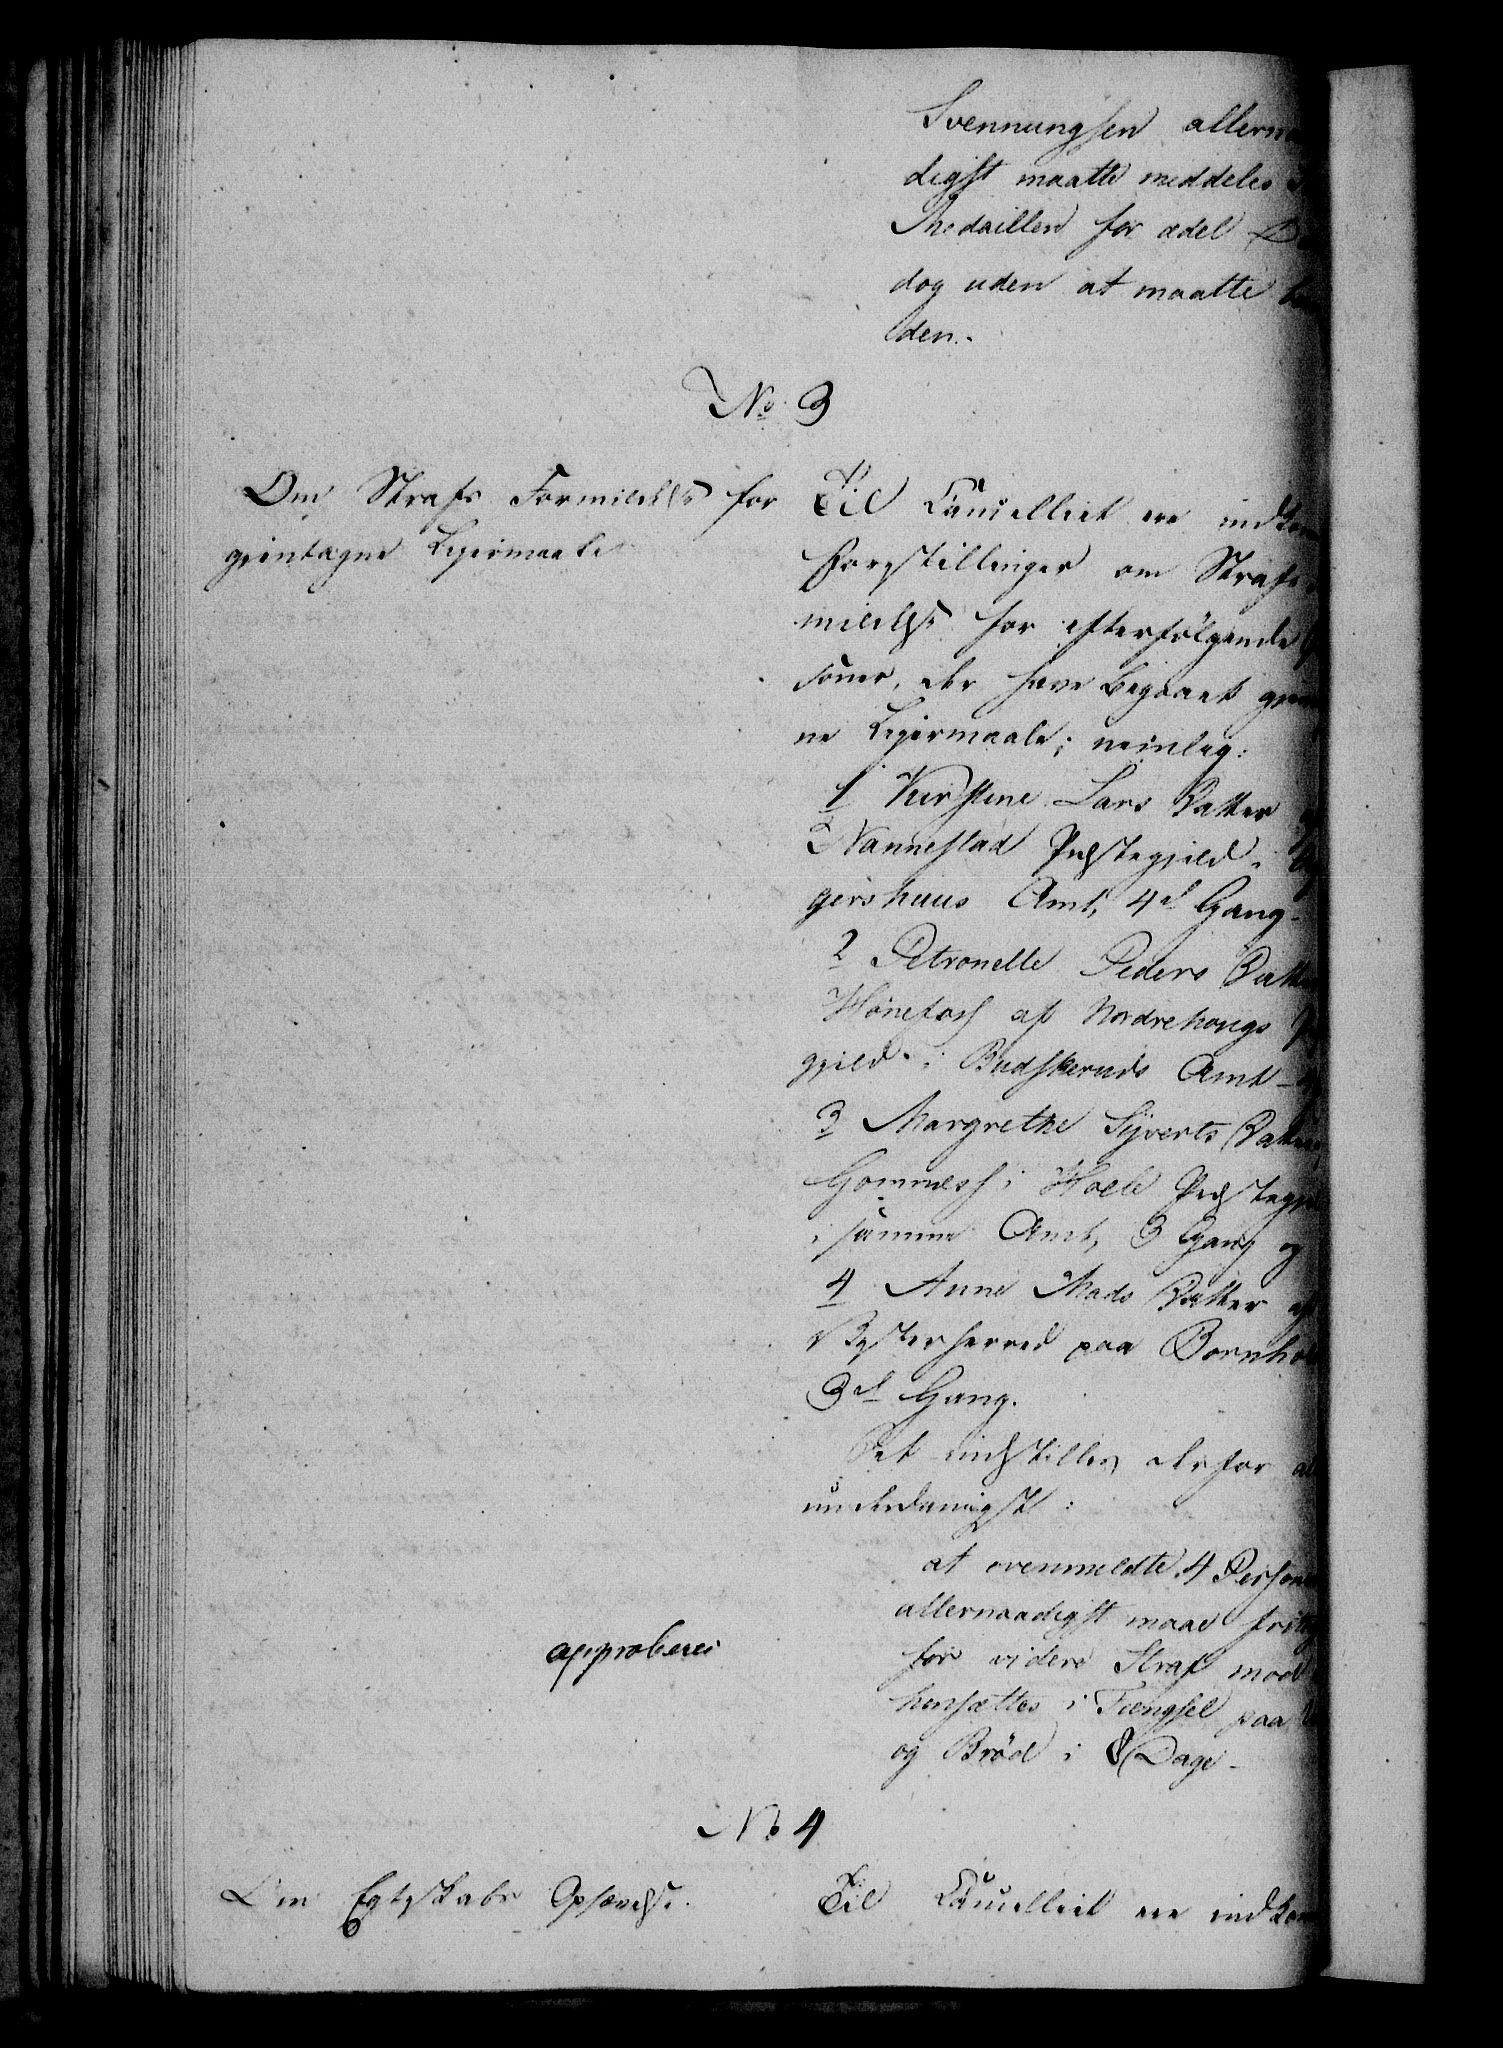 Svennungsen allerna
digst maatte meddeles
Medaillen for ædel D
dog uden at maatte bæ
den.
No 3
Om Strafs Formildelse for
gientagne Leiermaale
Til Cancelliet ere indkom
Forestillinger om Strafs
mildelse for efterfølgende P
soner, der have begaaet gien
ne Leiermaale; nemlig:
1 Kirstine Lars Datter af
Nannestad Præstegield i Ag
gershuus Amt, 4de Gang-
2 Petronelle Peders Datter
Hønefos af Nordrehougs Pr
gield i Budskeruds Amt -
3 Margrethe Syverts Datter
Gomnæss i Hoele Præstegie
i samme Amt, 3 Gang og
4 Anne Mads Datter af
Vesterherred paa Bornhol
3de Gang.
Det indstilles derfor al
underdanigst:
at ovenmeldte 4 Persone
allernaadigst maae fritag
for videre Straf mod
hensættes i Fængsel paa V
og Brød i 8 Dage-
approberes
No 4
Om Egteskabs Ophævelse.
Til Cancelliet ere indkom